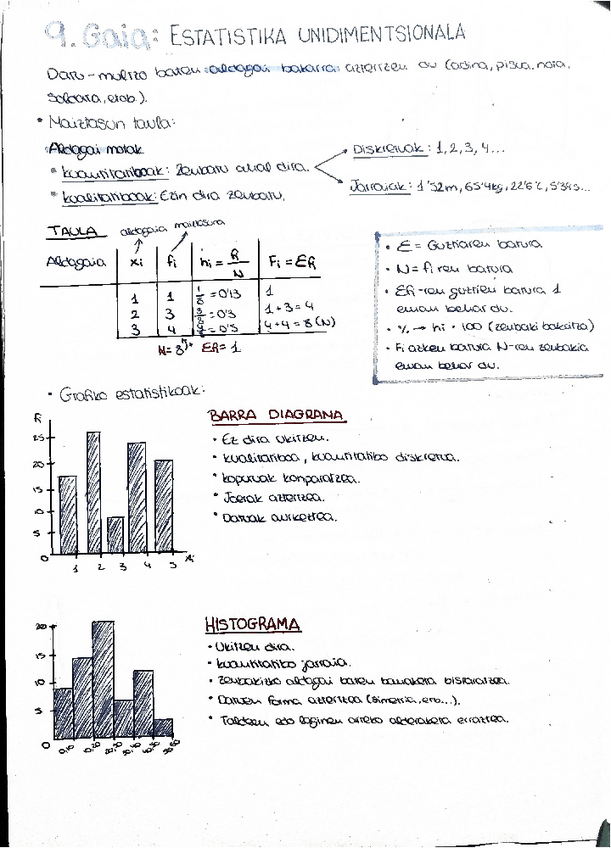 9. Gaia: ESTATISTIKA UNIDIMENTSIONALA
Datu-multzo baten aldagai bakarra aztertzen du (adina, pisua, nota,
soldata, etab.).
• Maiztasun taula:
Aldagai motak
• kuantitatiboak: Zenbatu ahal dira.
Diskretuak: 1, 2, 3, 4...
Jarraiak: 1'52m, 65'4kg, 22'6ºC, 5'34s...
• kualitatiboak: Ezin dira zenbatu.
TAULA aldagaia maiztasuna
Aldagaia xi fi hi = R/N Fi = ER
1 1 1/8 = 0'13 1
2 3 = 0'3 1+3=4
3 4 = 0'5 4+4=8 (N)
N=8 ER=1
• E = Guztiaren batura
• N = fi ren batura
• ER-ren guztien batura 1
eman behar du.
• % → hi · 100 (zenbaki bakoitza)
• Fi azken batura N-ren zenbakia
eman behar du.
• Grafiko estatistikoak:
BARRA DIAGRAMA
• Ez dira ukitzen.
• kualitatiboa, kuantitatibo diskretua.
• kopuruak konparatzea.
• Joerak aztertzea.
• Datuak aurkeztea.
fi
25
20
15
10
5
0
1 2 3 4 5 xi
HISTOGRAMA
• Ukitzen dira.
• kuantitatibo jarraia.
• Zenbakizko aldagai baten banaketa bistaratzea.
• Datuen forma aztertzea (simetria, etb...).
• Taldeen edo laginen arteko alderaketa erraztea.
20
15
10
5
0
0,10 10,20 20,30 30,40 40,50 50,60